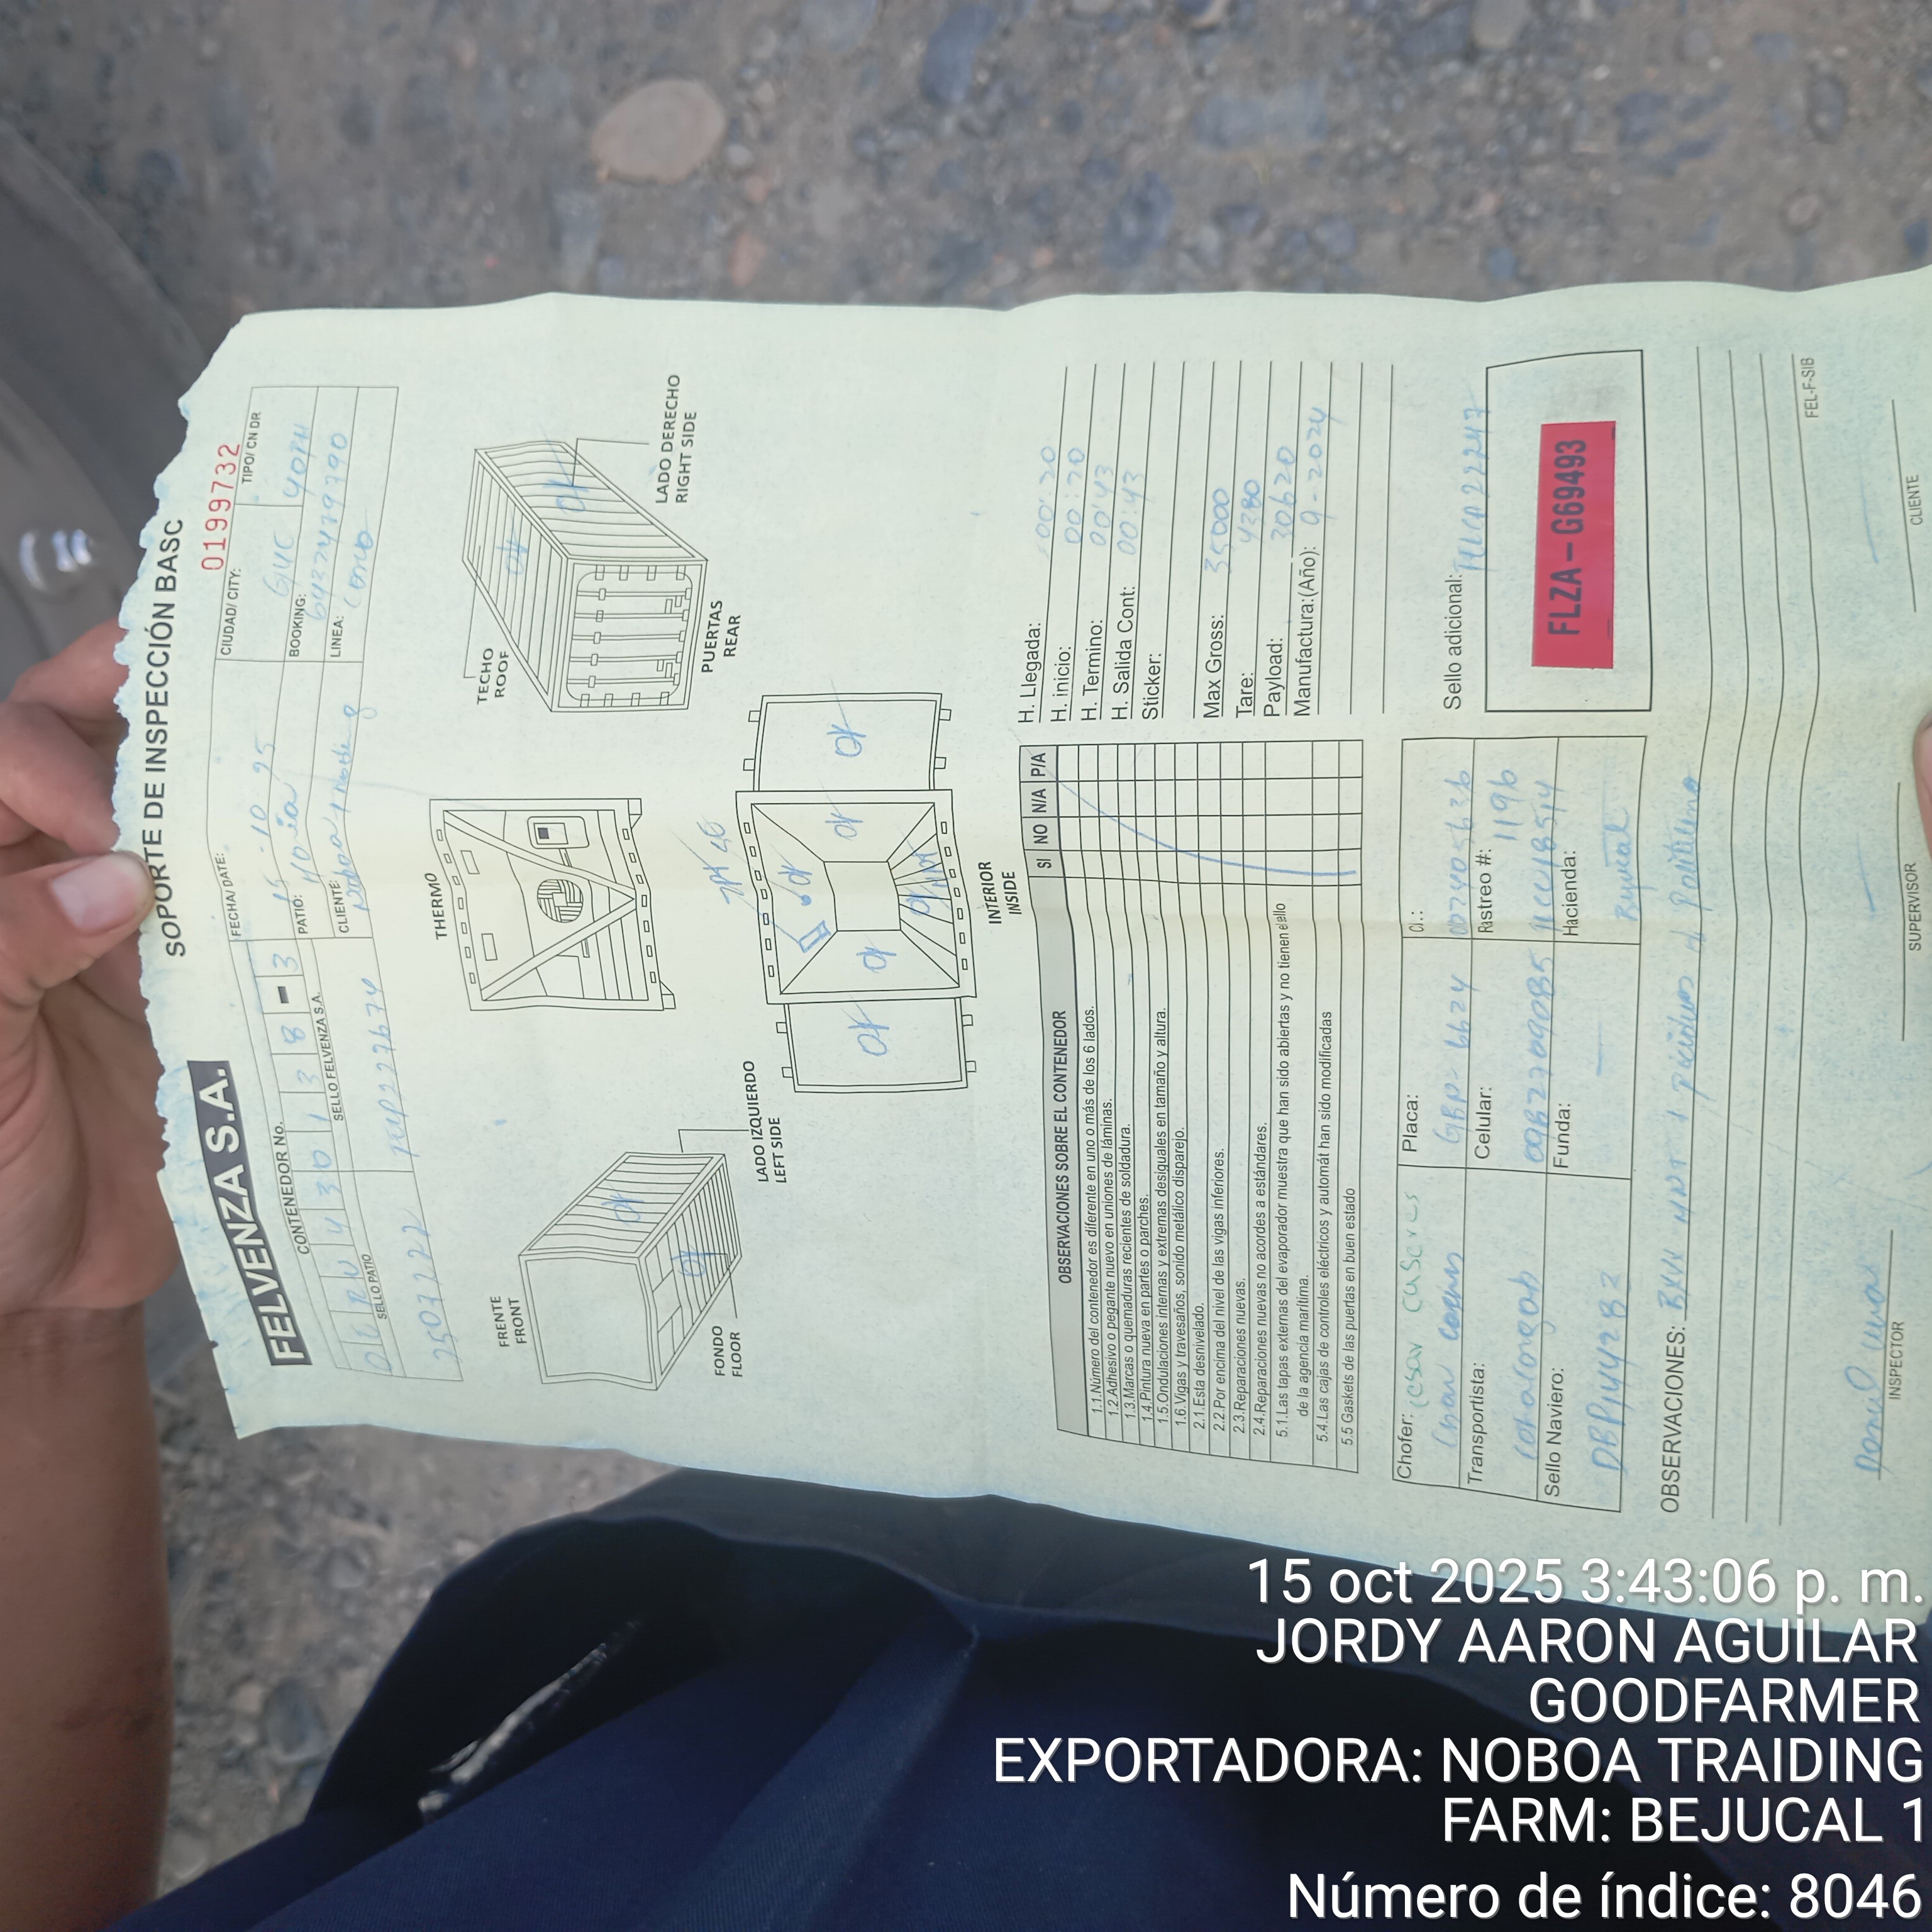 FELVENZA S.A.
SOPORTE DE INSPECCIÓN BASC
0199732
CONTENEDOR No.
3 0 1 3 8 - 3
FECHA/ DATE:
15-10-25
CIUDAD/ CITY:
GYE
TIPO/ CN DR
SELLO PATIO
2507222
SELLO FELVENZA S.A.
PATIO:
BOOKING:
CLIENTE:
LINEA:
THERMO
FRENTE
FRONT
FONDO
FLOOR
LADO IZQUIERDO
LEFT SIDE
TECHO
ROOF
LADO DERECHO
RIGHT SIDE
PUERTAS
REAR
INTERIOR
INSIDE
OK
OK
OK
OK
OK
OK
OK
OK
OK
OBSERVACIONES SOBRE EL CONTENEDOR
SI NO N/A P/A
1.1.Número del contenedor es diferente en uno o más de los 6 lados.
1.2.Adhesivo o pegante nuevo en uniones de láminas.
1.3.Marcas o quemaduras recientes de soldadura.
1.4.Pintura nueva en partes o parches.
1.5.Ondulaciones internas y extremas desiguales en tamaño y altura.
1.6.Vigas y travesaños, sonido metálico disparejo.
2.1.Esta desnivelado.
2.2.Por encima del nivel de las vigas inferiores.
2.3.Reparaciones nuevas.
2.4.Reparaciones nuevas no acordes a estándares.
5.1.Las tapas externas del evaporador muestra que han sido abiertas y no tienen el ello
de la agencia marítima.
5.4.Las cajas de controles eléctricos y automát han sido modificadas
5.5 Gaskets de las puertas en buen estado
H. Llegada: 00:20
H. inicio: 00:20
H. Termino: 00:43
H. Salida Cont: 00:43
Sticker:
Max Gross: 35000
Tare: 4380
Payload: 30620
Manufactura:(Año): 9-2024
Chofer:
Placa: GBP-6624
CI.:
Transportista:
Celular:
Rastreo #:
Sello Naviero:
Funda:
Hacienda:
Sello adicional:
FLZA – G69493
OBSERVACIONES:
FEL-F-SIB
INSPECTOR
SUPERVISOR
CLIENTE
15 oct 2025 3:43:06 p. m.
JORDY AARON AGUILAR
GOODFARMER
EXPORTADORA: NOBOA TRAIDING
FARM: BEJUCAL 1
Número de índice: 8046